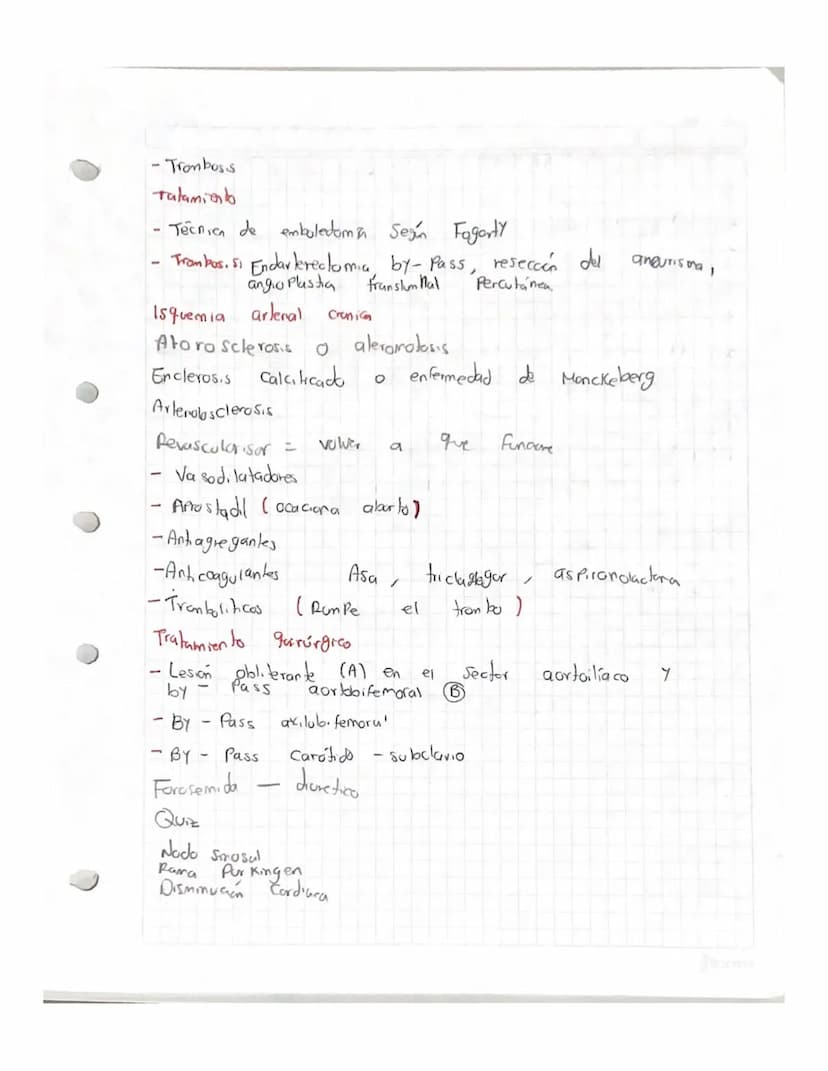 - Trombosis
Tratamiento
- Técnica de emboledomia Según Fogarty
- Trombosis: Endarterectomia, by-Pass, resección del aneurisma,
angioplastia transluminal Percutánea.
Isquemia arterial cronica
Atorosclerosis o ateromatosis
Enclerosis calcificado o enfermedad de Monckeberg
Arteriolosclerosis
Revascularisar = volver a que funcione
- Vasodilatadores
- Aprostadil (ocaciona aborto)
- Antiagregantes
- Anticoagulantes Asa, ticlagregor, aspironolactona
- Trombolíticos (Rompe el trombo)
Tratamiento quirúrgico
- Lesión obliterante (A) en el sector aortoilíaco y
by - Pass aortobifemoral (B)
- By - Pass axilobifemoral
- By - Pass Carótido - subclavio
Forosemida — diuretico
Quiz
Nodo Sinosal
Rama Purkingen
Disminución Cardiaca